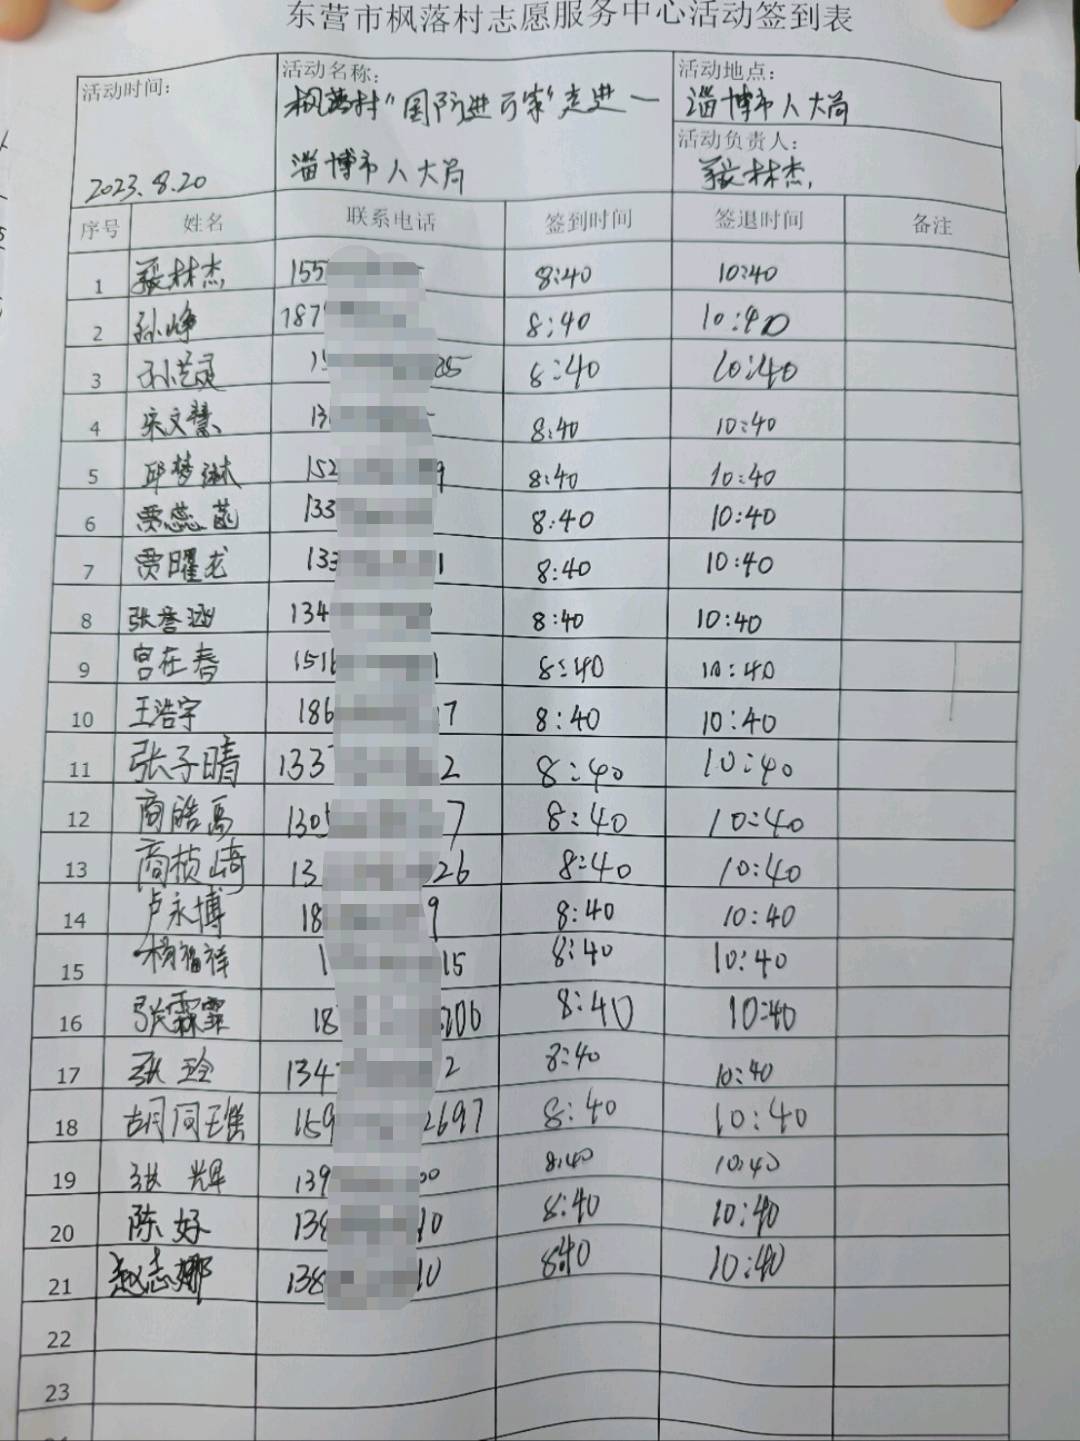 东营市枫落村志愿服务中心活动签到表
活动时间: 2023.8.20
活动名称: 枫落村“国防进万家”走进一
淄博市人大局
活动地点: 淄博市人大局
活动负责人: 张林杰
序号 姓名 联系电话 签到时间 签退时间 备注
1 张林杰 155 8:40 10:40
2 孙峥 187 8:40 10:40
3 15 35 8:40 10:40
4 宋文慧 13 8:40 10:40
5 邱梦琳 152 9 8:40 10:40
6 贾蕊菡 133 8:40 10:40
7 贾曜龙 133 1 8:40 10:40
8 张誉涵 134 8:40 10:40
9 宫在春 151 1 8:40 10:40
10 王浩宇 186 7 8:40 10:40
11 张子晴 133 2 8:40 10:40
12 商皓 130 7 8:40 10:40
13 商桢崎 13 26 8:40 10:40
14 卢永博 18 9 8:40 10:40
15 杨福祥 1 15 8:40 10:40
16 张霖霏 18 206 8:40 10:40
17 张玲 134 2 8:40 10:40
18 胡同瑾 159 2697 8:40 10:40
19 张辉 139 00 8:40 10:40
20 陈好 138 10 8:40 10:40
21 赵志娜 138 10 8:40 10:40
22
23